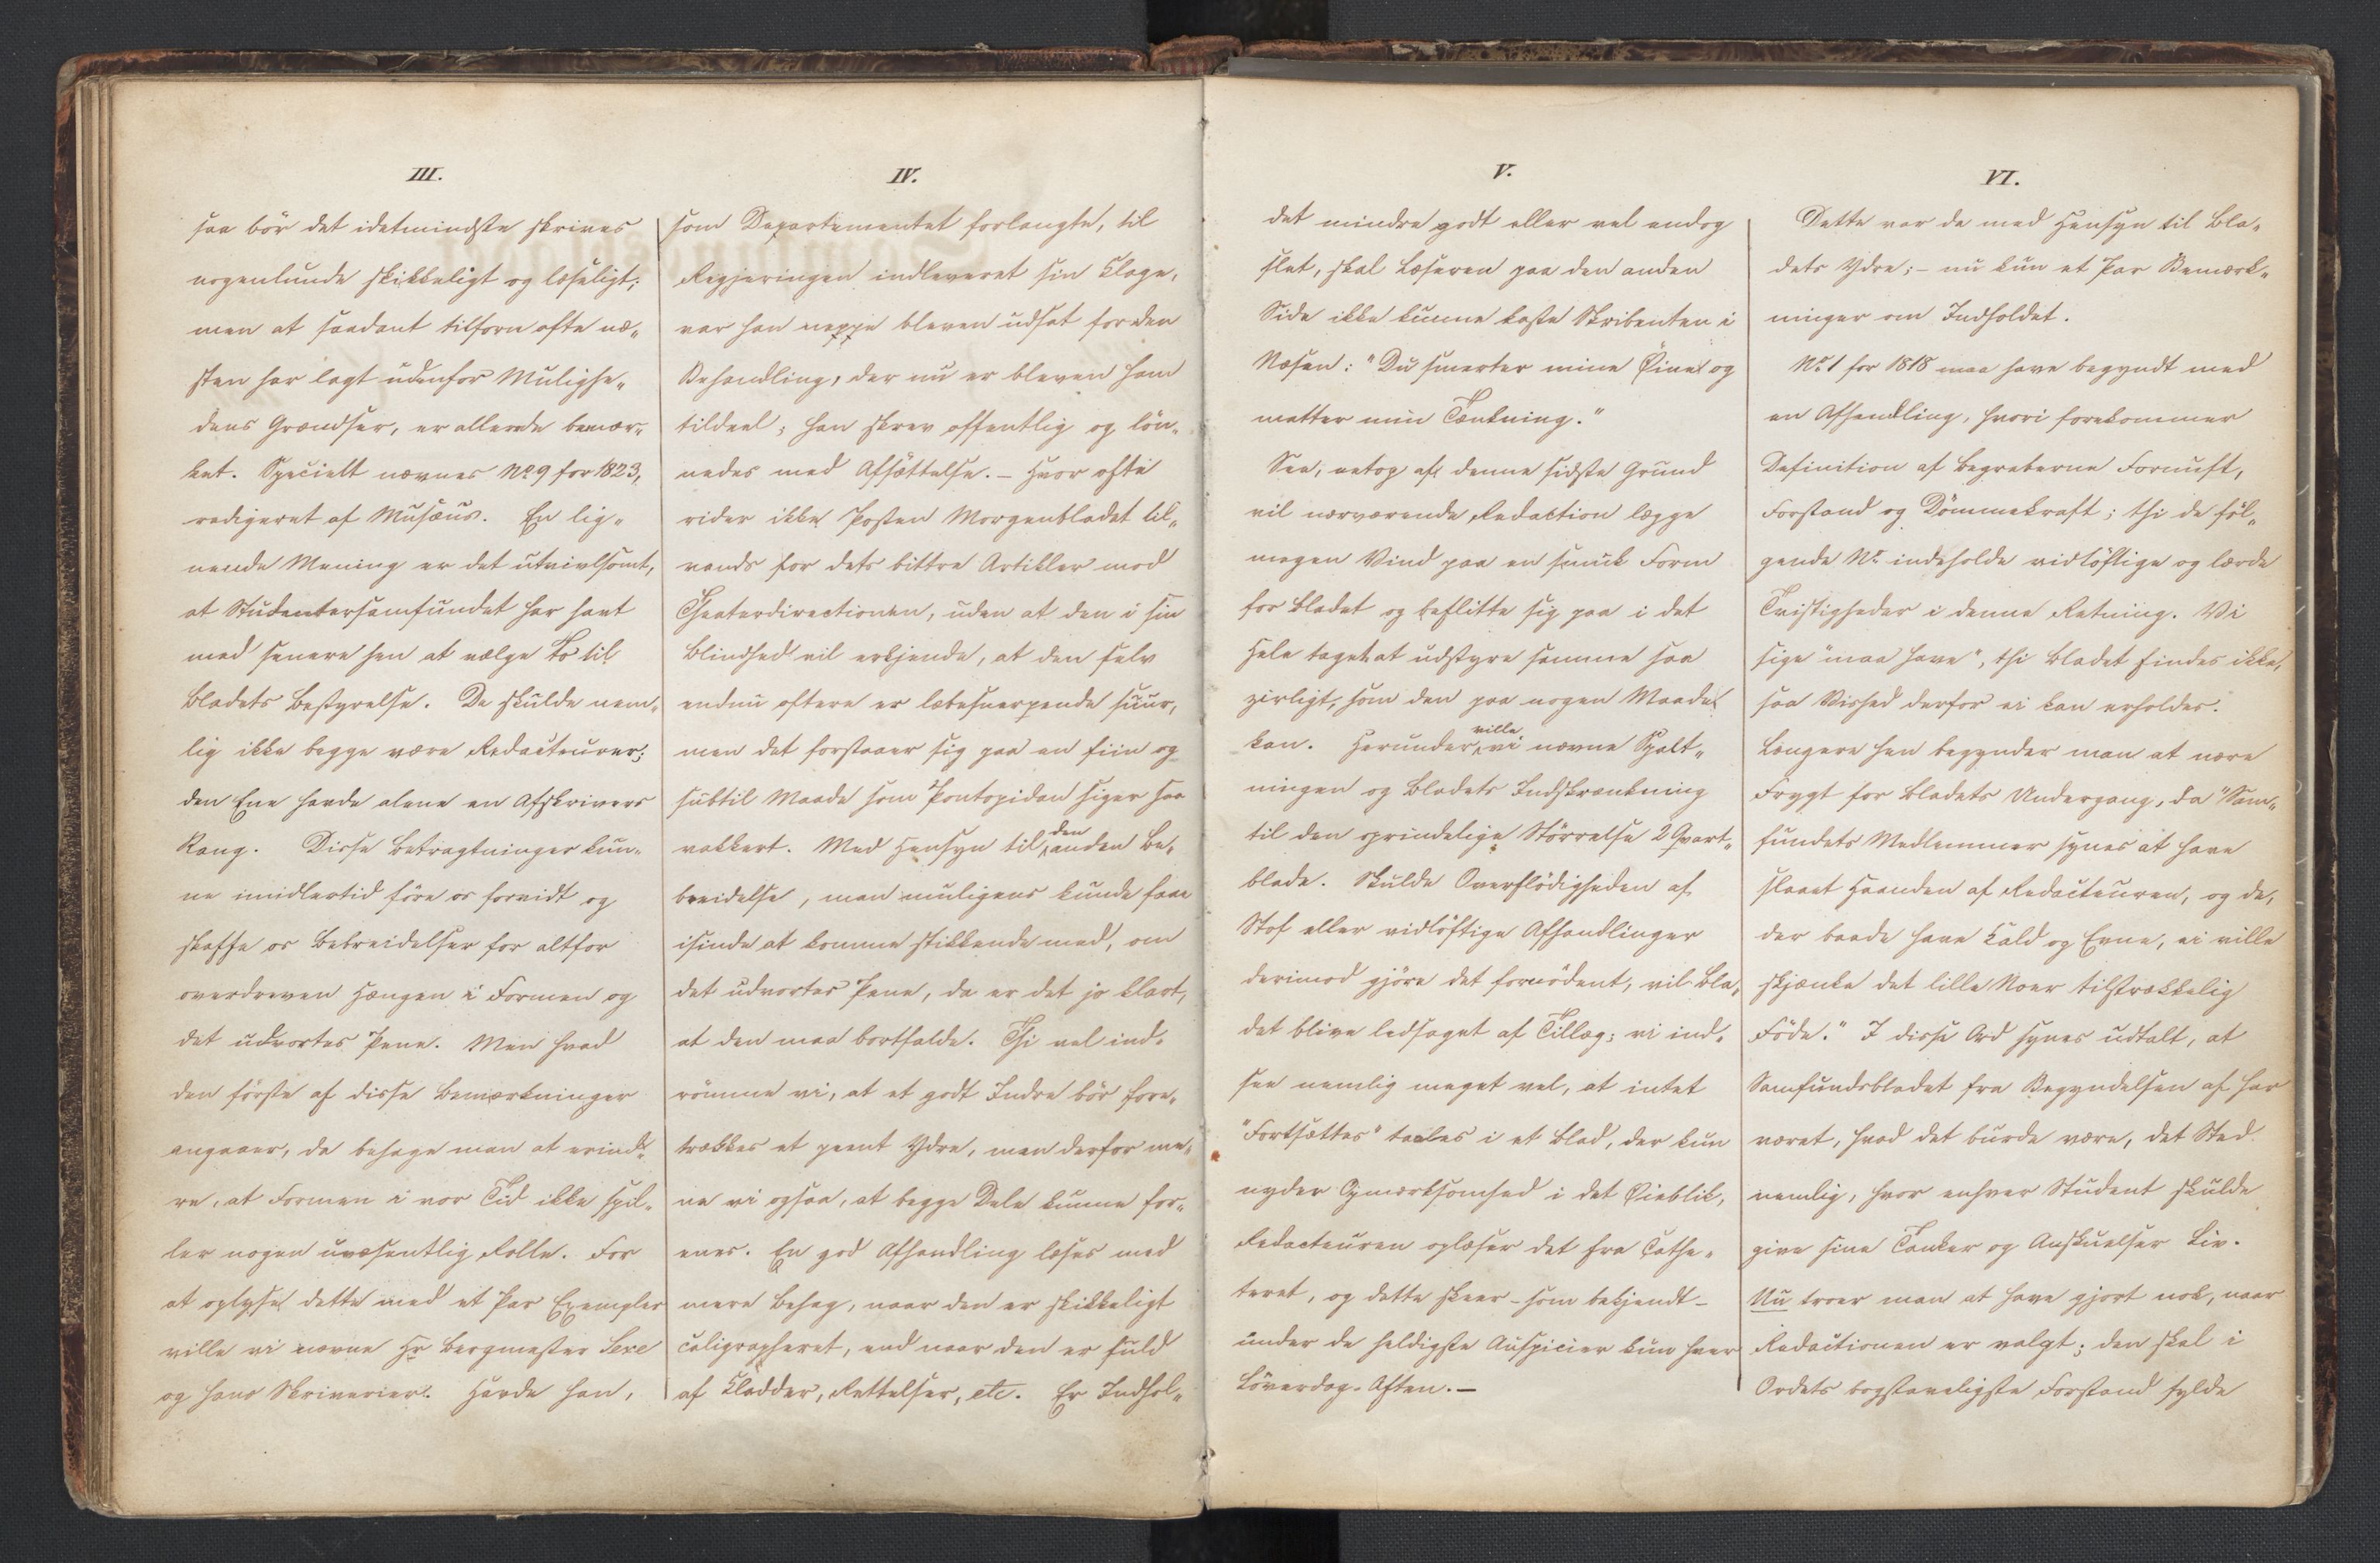 III.
saa bör det idetmindste skrives
nogenlunde skikkeligt og læseligt;
men at saadant tilforn ofte næ„
sten har lagt udenfor Mulighe„
dens Grændser, er allerede bemær„
ket. Specielt nævnes No 9 for 1823,
redigeret af Musæus. En lig„
nende Mening er det utvivlsomt,
at Studentersamfundet har havt
med senere hen at vælge To til
Bladets Bestyrelse. De skulde nem„
lig ikke begge være Redacteurer;
den Ene havde alene en Afskrivers
Rang. Disse Betragtninger kun„
ne imidlertid före os forvidt og
skaffe os Bebreidelser for altfor
overdreven Hængen i Formen og
det udvortes Pene. Men hvad
den förste af disse Bemærkninger
angaaer, da behage man at erind„
re, at Formen i vor Tid ikke spil„
ler nogen uvæsentlig Rolle. For
at oplyse dette med et Par Exempler
ville vi nævne Hr Bergmester Sexe
og hans Skriverier. Havde han,
IV.
som Departementet forlangte, til
Regjeringen indleveret sin Klage,
var han neppe bleven udsat for den
Behandling, der nu er bleven ham
tildeel; han skrev offentlig og lön„
nedes med Afsættelse. – Hvor ofte
rider ikke Posten Morgenbladet til„
vands for dets bittre Artikler mod
Theaterdirectionen, uden at den i sin
Blindhed vil erkjende, at den selv
endnu oftere er læbesnerpende suur,
men det forstaaer sig paa en fiin og
subtil Maade som Pontopidan siger saa
vakkert. Med Hensyn til den anden Be„
breidelse, man muligens kunde faae
isinde at komme stikkende med, om
det udvortes Pene, da er det jo klart,
at den maa bortfalde. Thi vel ind„
römme vi, at et godt Indre bör fore„
trækkes et peent Ydre, men derfor me„
ne vi ogsaa, at begge Dele kunne for„
enes. En god Afhandling læses med
mere Behag, naar den er skikkeligt
caligrapheret, end naar den er fuld
af Kladder, Rettelser, etc. Er Indhol„
V.
det mindre godt eller vel endog
slet, skal Læseren paa den anden
Side ikke kunne kaste Skribenten i
Næsen: "Du smerter mine Öine og
matter min Tænkning."
See, netop af denne sidste Grund
vil nærværende Redaction lægge
megen Vind paa en smuk Form
for Bladet og beflitte sig paa i det
Hele taget at udstyre samme saa
zirligt, som den paa nogen Maade
kan. Herunder ville vi nævne Spalt„
ningen og Bladets Indskrænkning
til den oprindelige Störrelse 2 Qvart„
blade. Skulde Overflödigheden af
Stof eller vidlöftige Afhandlinger
derimod gjöre det fornödent, vil Bla„
det blive ledsaget af Tillæg; vi ind„
see nemlig meget vel, at intet
"Fortsættes" taales i et Blad, der kun
nyder Opmærksomhed i det Öieblik,
Redacteuren oplæser det fra Cathe„
teret, og dette skeer – som bekjendt –
under de heldigste Auspicier kun hver
Löverdag-Aften. –
VI.
Dette var da med Hensyn til Bla„
dets Ydre; – nu kun et Par Bemærk„
ninger om Indholdet.
No 1 for 1818 maa have begyndt med
en Afhandling, hvori forekommer
Definition af Begreberne Fornuft,
Forstand og Dömmekraft; thi de föl„
gende Nr indeholde vidlöftige og lærde
Tvistigheder i denne Retning. Vi
sige "maa have", thi Bladet findes ikke,
saa Vished derfor ei kan erholdes.
Længere hen begynder man at nære
Frygt for Bladets Undergang, da "Sam„
fundets Medlemmer synes at have
slaaet Haanden af Redacteuren, og de,
der baade have Kald og Evne, ei ville
skjænke det lille Noer tilstrækkelig
Föde." I disse Ord synes udtalt, at
Samfundsbladet fra Begyndelsen af har
været, hvad det burde være, det Sted
nemlig, hvor enhver Student skulde
give sine Tanker og Anskuelser Liv.
Nu troer man at have gjort nok, naar
Redactionen er valgt; den skal i
Ordets bogstaveligste Forstand fylde